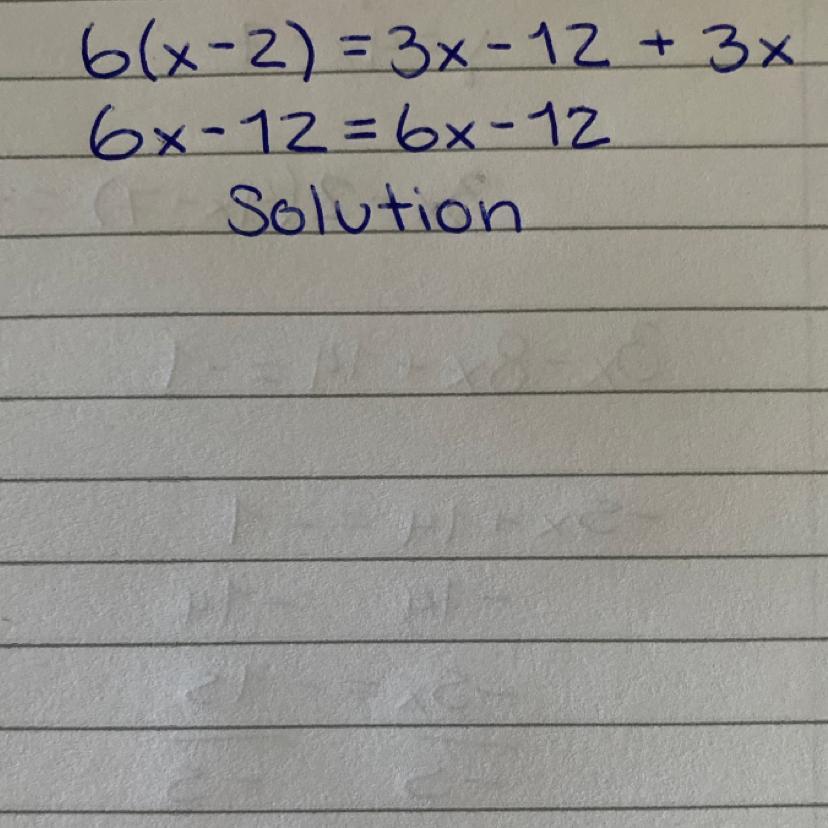 6(x-2) = 3x-12 + 3x
6x-12 = 6x-12
Solution